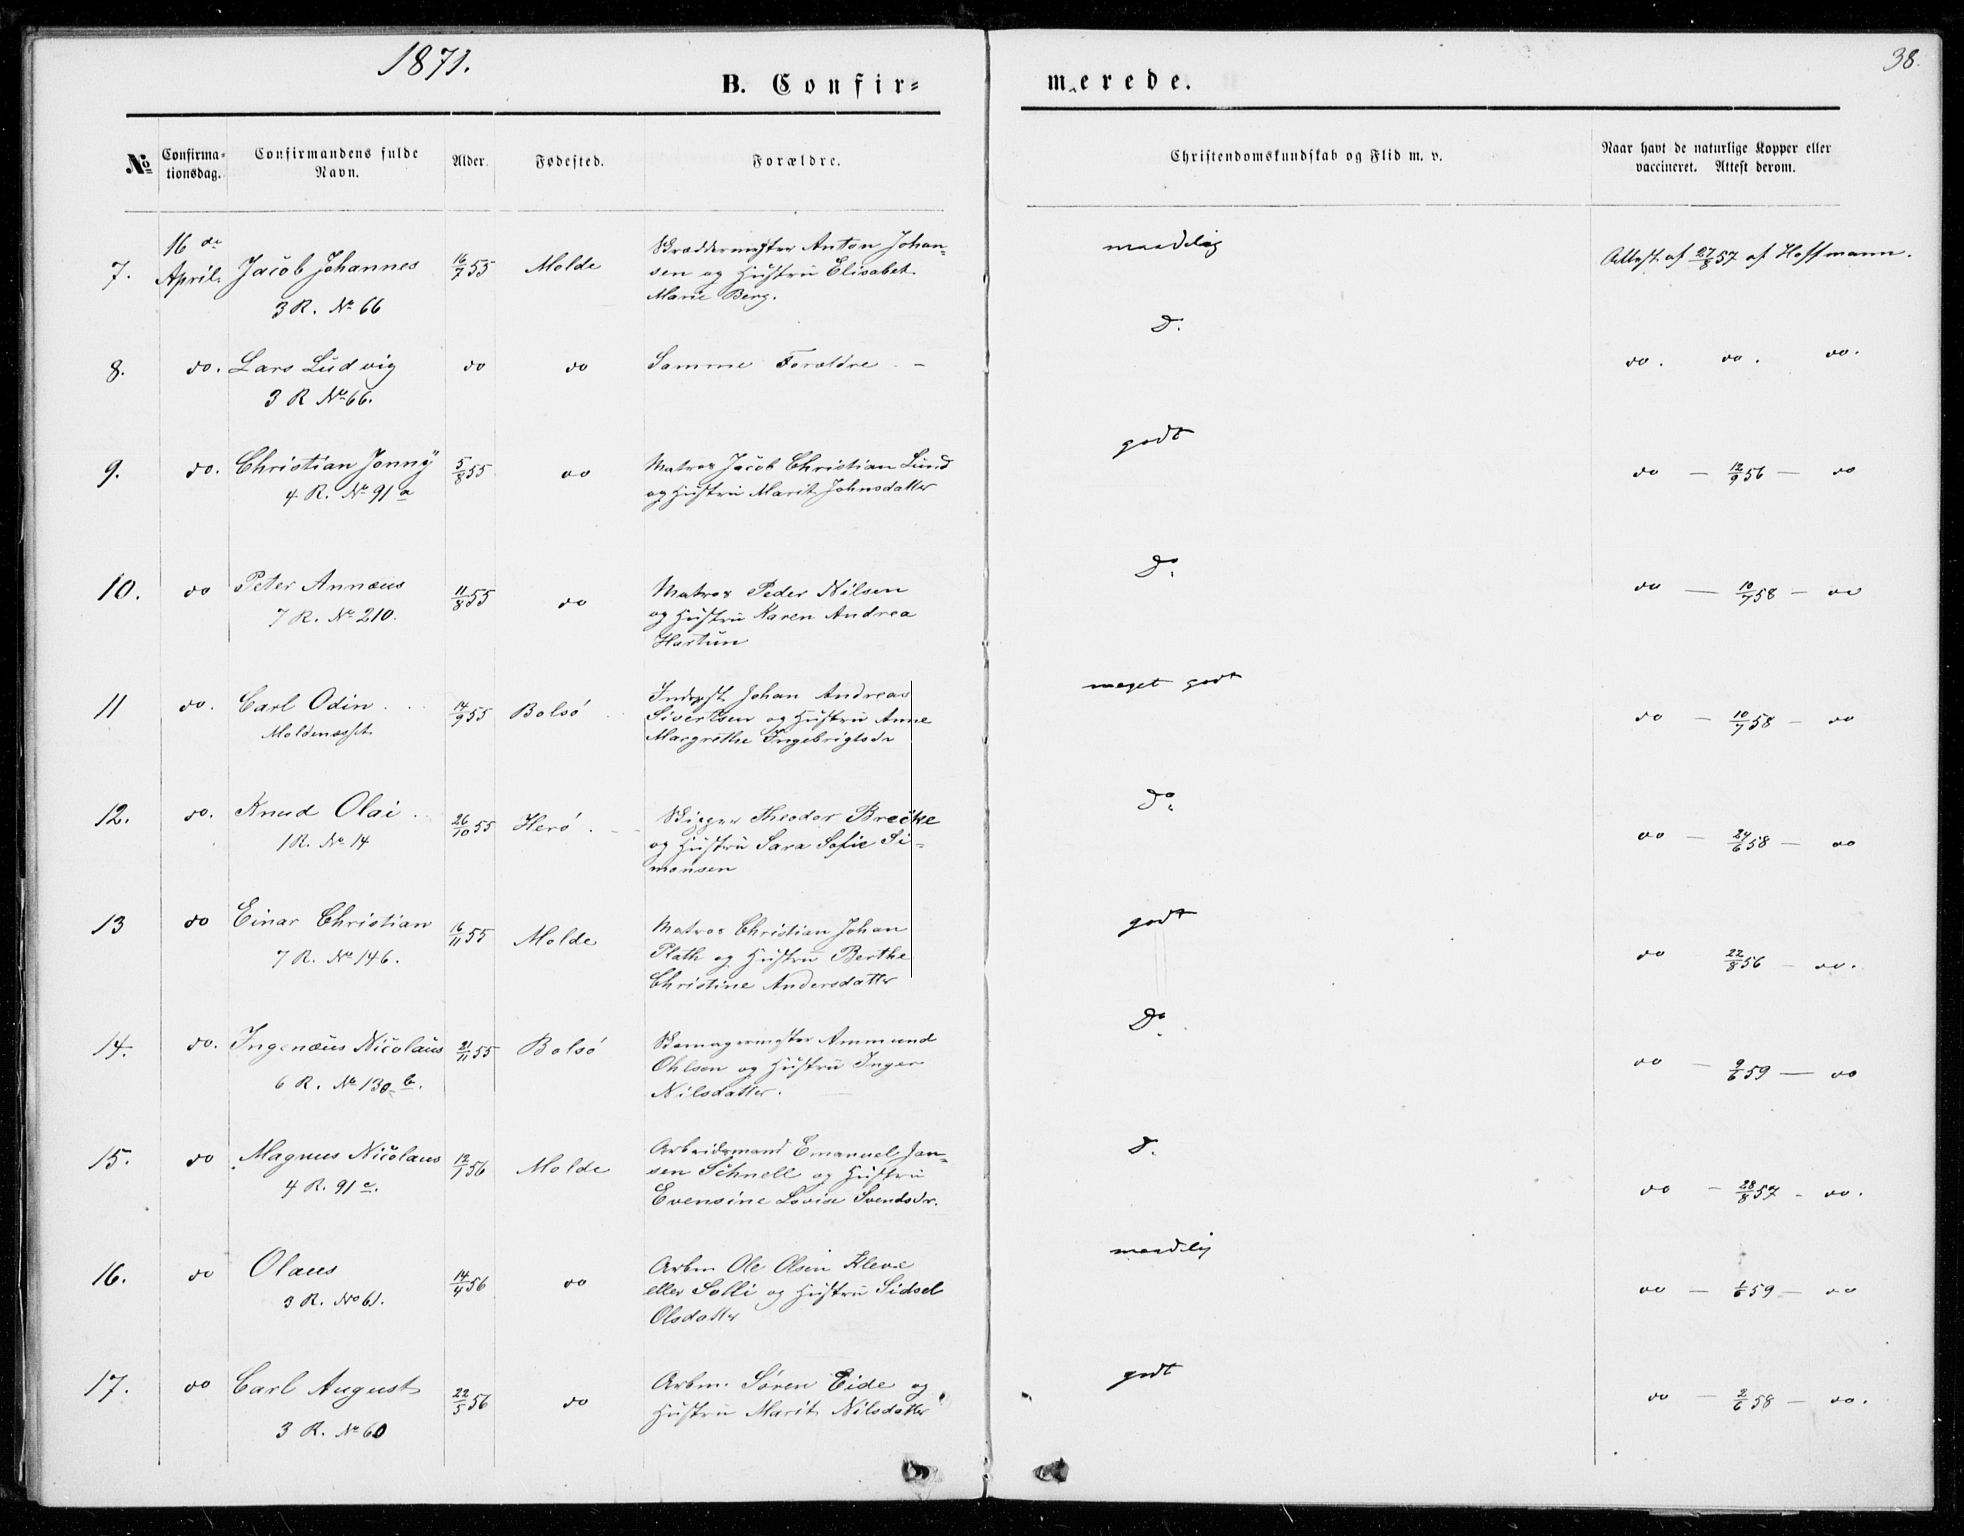 1871.
38.
B. Confir-
merede.
No
Confirma-
tionsdag.
Confirmandens fulde
Navn.
Alder.
Fødested.
Forældre.
Christendomskundskab og Flid m. v.
Naar havt de naturlige Kopper eller
vaccineret. Attest derom.
7. 16de April. Jacob Johannes 16/7 55 Molde
3 R. No 66
Skræddermester Anton Johan-
sen og Hustru Elisabet
Marie Berg.
maadelig
Attest af 27/8 57 af Hoffmann.
8. do. Lars Ludvig do do Samme Forældre. –
3 R No 66.
D.
do. do. do.
9. do. Christian Jonny 5/8 55 do
4 R. No 91 a
Matros Jacob Christian Lund
og Hustru Marit Johnsdatter
godt
do – 12/9 56 – do
10. do Peter Annæus 11/8 55 do
7 R. No 210.
Matros Peder Nilsen
og Hustru Karen Andrea
Hartun
Do
do – 10/7 58 – do
11 do. Carl Odin 14/9 55 Bolsø
Moldenæsset
Inderst Johan Andreas
Sivertsen og Hustru Anne
Margrethe Ingebrigtsdr
meget godt
do – 10/7 58 – do
12. do. Knud Olai 26/10 55 Herø
1 R. No 14
Skipper Theodor Brecke
og Hustru Sara Sofie Si-
monsen
Do
do – 24/6 58 – do
13 do Einar Christian 16/11 55 Molde
7 R. No 146.
Matros Christian Johan
Plath og Hustru Berthe
Christine Andersdatter
godt
do 22/8 56 – do.
14. do. Ingenæus Nicolaus 21/11 55 Bolsø
6 R. No 130 b.
Skomagermester Ammund
Ohlsen og Hustru Inger
Nilsdatter.
Do
do – 9/6 59 – do
15. do Magnus Nicolaus 12/1 56 Molde
4 R. 91 c.
Arbeidsmand Emanuel Jan-
sen Schnell og Hustru
Evensine Lovise Svendsdr.
D.
do – 28/8 57 – do.
16. do Olaus 14/4 56 do
3 R. No 61.
Arbm. Ole Olsen Kleve
eller Solli og Hustru Sidsel
Olsdatter
maadelig
do – 1/6 59 – do
17. do Carl August 22/5 56 do
3 R. No 60
Arbm. Søren Eide og
Hustru Marit Nilsdatter
godt
do – 2/6 58 – do.